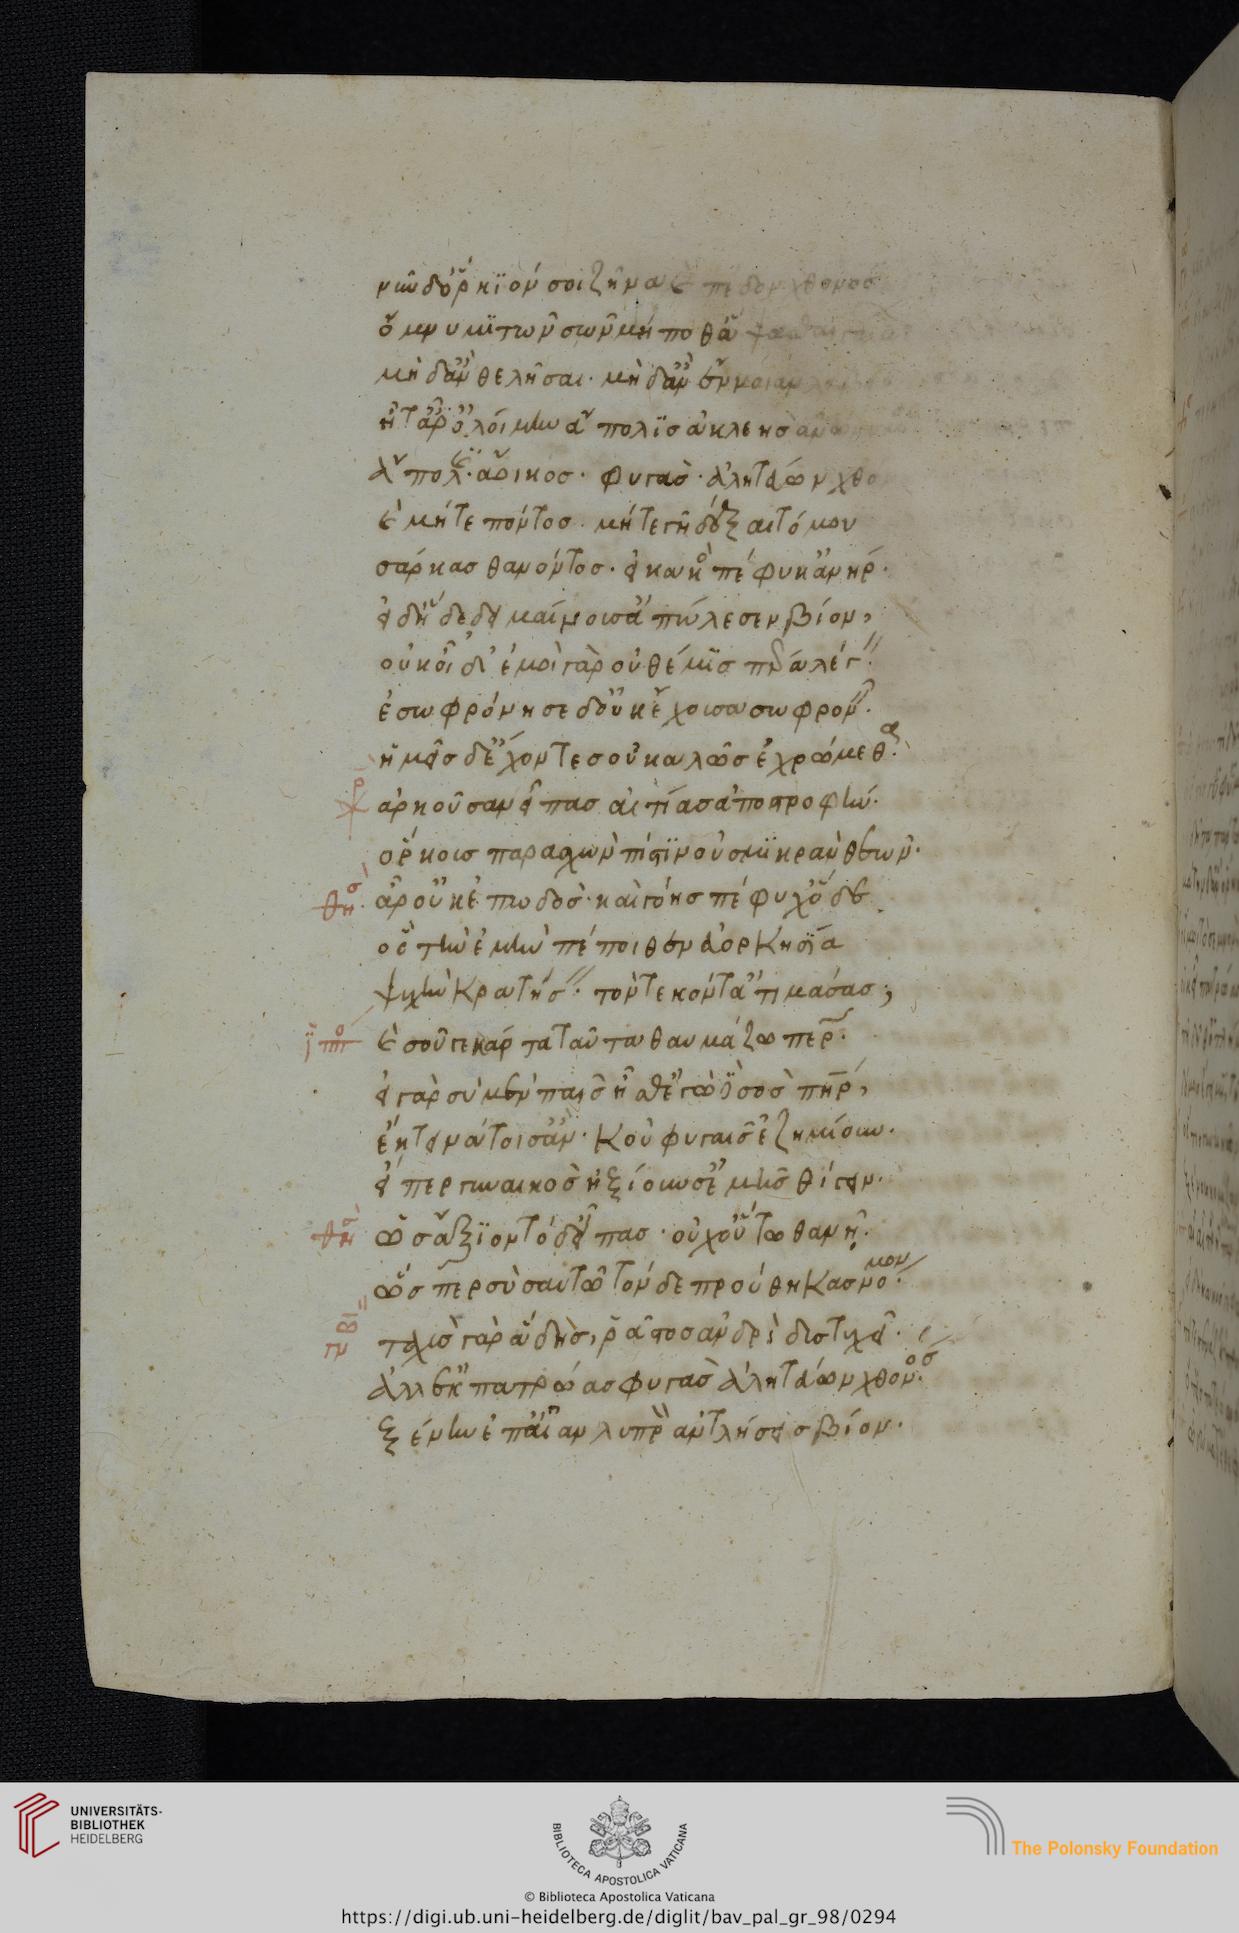 νῦν δ' ὅρκιόν σοι ζῆνα καὶ πέδον χθονὸς
ὄμνυμι τῶν σῶν μή ποθ' ἅψασθαι γάμων
μὴ δ' ἂν θελῆσαι. μὴ δ' ἂν ἔννοιαν λαβεῖν
ἦ τἄρ' ὀλοίμην ἀκλεὴς ἀνώνυμος
ἄπολις ἄοικος. φυγὰς ἀλητεύων χθόνα
καὶ μήτε πόντος. μήτε γῆ δέξαιτό μου
σάρκας θανόντος. εἰ κακὸς πέφυκ' ἀνήρ.
εἰ δ' ἥδε δειμαίνουσ' ἀπώλεσεν βίον,
οὐκ οἶδ' ἐμοὶ γὰρ οὐ θέμις πέρα λέγειν.
ἐσωφρόνησε δ' οὐκ ἔχουσα σωφρονεῖν.
ἡμεῖς δ' ἔχοντες οὐ καλῶς ἐχρώμεθα.
χρ ἀρκοῦσαν εἶπας αἰτίας ἀποστροφήν.
ὅρκους παρασχὼν πίστιν οὐ σμικρὰν θεῶν.
θησ ἆρ' οὐκ ἐπῳδὸς καὶ γόης πέφυχ' ὅδε
ὃς τὴν ἐμὴν πέποιθεν εὐοργησίᾳ
ψυχὴν κρατήσειν. τὸν τεκόντ' ἀτιμάσας;
ἱππο καὶ σοῦ γε κάρτα ταῦτα θαυμάζω πάτερ.
εἰ γὰρ σὺ μὲν παῖς ἦσθ' ἐγὼ δὲ σὸς πατήρ,
ἔκτεινά τοί σ' ἂν. κοὐ φυγαῖς ἐζημίουν.
εἴπερ γυναικὸς ἠξίους ἐμῆς θιγεῖν.
θησ ὡς ἄξιον τόδ' εἶπας. οὐχ οὕτω θανῇ.
ὥσπερ σὺ σαυτῷ τόνδε προύθηκας νόμον.
ταχὺς γὰρ ᾅδης, ῥᾷστος ἀνδρὶ δυστυχεῖ.
ἀλλ' ἐκ πατρῴας φυγὰς ἀλητεύων χθονὸς
ξένην ἐπ' αἶαν λυπρὸν ἀντλήσεις βίον.
UNIVERSITÄTS-
BIBLIOTHEK
HEIDELBERG
BIBLIOTECA APOSTOLICA VATICANA
The Polonsky Foundation
© Biblioteca Apostolica Vaticana
https://digi.ub.uni-heidelberg.de/diglit/bav_pal_gr_98/0294